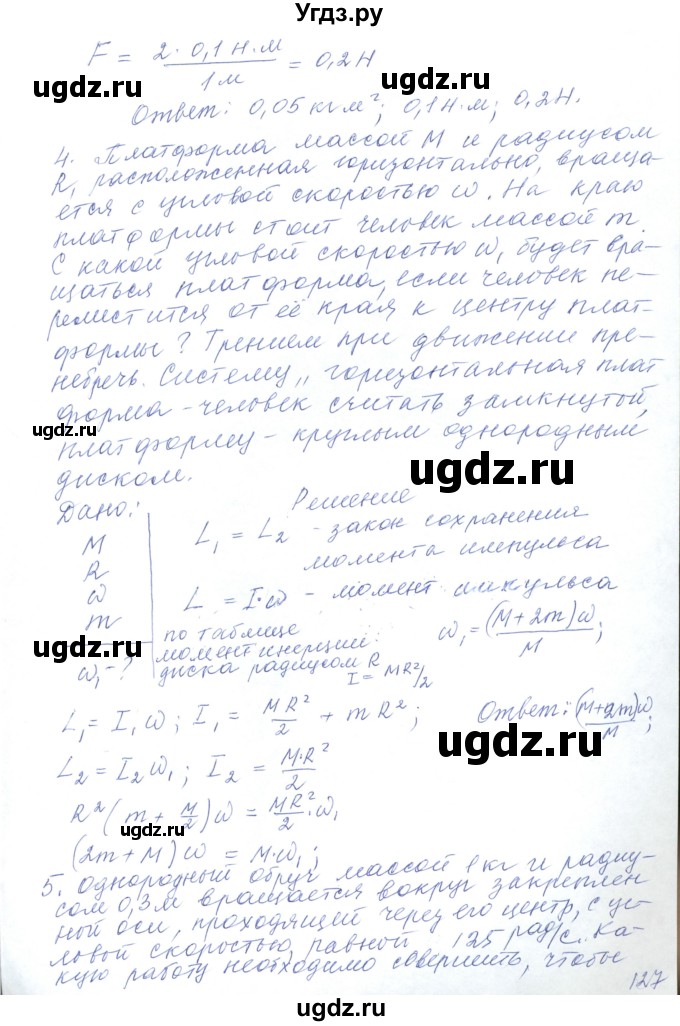 Угдз.ру
F = 2 · 0,1 Н·м / 1 м = 0,2 Н
Ответ: 0,05 кг м²; 0,1 Н·м; 0,2 Н.
4. Платформа массой М и радиусом
R, расположенная горизонтально, враща-
ется с угловой скоростью ω. На краю
платформы стоит человек массой m.
С какой угловой скоростью ω₁ будет вра-
щаться платформа, если человек пе-
реместится от её края к центру плат-
формы? Трением при движении пре-
небречь. Систему „горизонтальная плат
форма - человек считать замкнутой,
платформу - круглым однородным
диском.
Дано:
М
R
ω
m
ω₁ - ?
Решение
L₁ = L₂ - закон сохранения
момента импульса
L = I·ω - момент импульса
по таблице
момент инерции
диска радиусом R
I = MR²/2
ω₁ = (M+2m)ω / M ;
L₁ = I₁ω ; I₁ = MR²/2 + mR² ;
Ответ: (M+2m)ω / M ;
L₂ = I₂ω₁ ; I₂ = M·R²/2
R²(m + M/2)ω = MR²/2 · ω₁
(2m+M)ω = M·ω₁ ;
5. Однородный обруч массой 1 кг и радиу-
сом 0,3 м вращается вокруг закреплен
ной оси, проходящей через его центр, с уг-
ловой скоростью, равной 125 рад/с. Ка-
кую работу необходимо совершить, чтобы
127
ugdz.ru
ugdz.ru
ugdz.ru
ugdz.ru
ugdz.ru
ugdz.ru
ugdz.ru
ugdz.ru
ugdz.ru
ugdz.ru
ugdz.ru